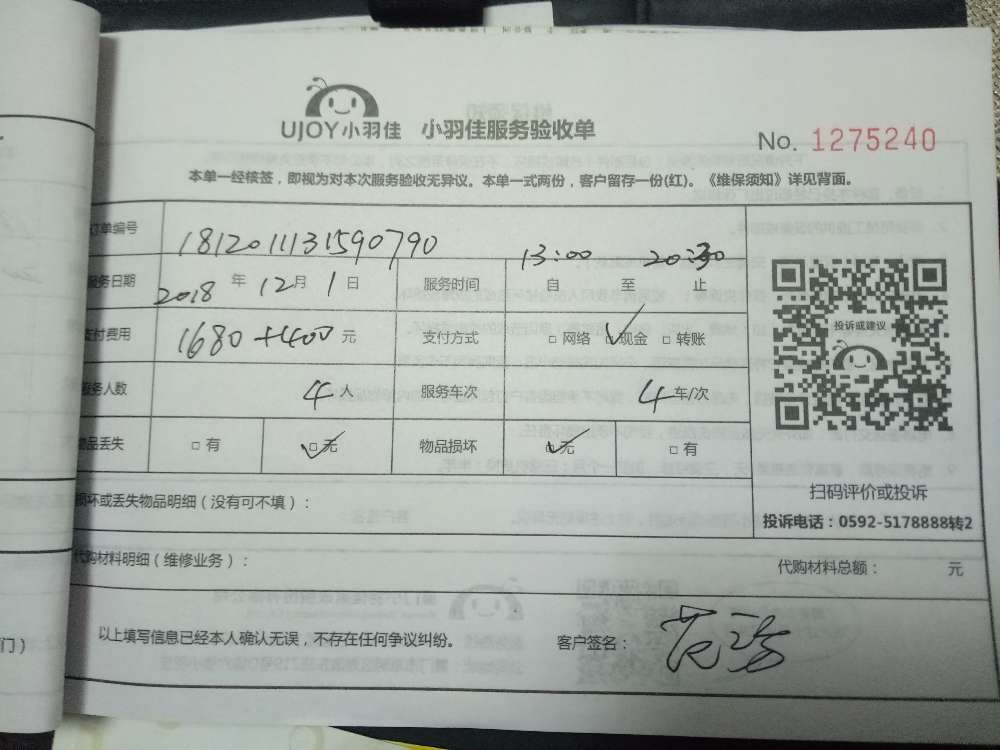 UJOY小羽佳 小羽佳服务验收单
No. 1275240
本单一经核签，即视为对本次服务验收无异议。本单一式两份，客户留存一份(红)。《维保须知》详见背面。
订单编号 181201131590790
服务日期 2018 年 12 月 1 日 服务时间 13:00 自 至 20:30 止
支付费用 1680+400 元 支付方式 □ 网络 ✓现金 □ 转账
服务人数 4 人 服务车次 4 车/次
物品丢失 □ 有 ☑ 无 物品损坏 ☑ 无 □ 有
投诉或建议
扫码评价或投诉
投诉电话：0592-5178888转2
损坏或丢失物品明细（没有可不填）：
代购材料明细（维修业务）： 代购材料总额： 元
以上填写信息已经本人确认无误，不存在任何争议纠纷。 客户签名：
门）